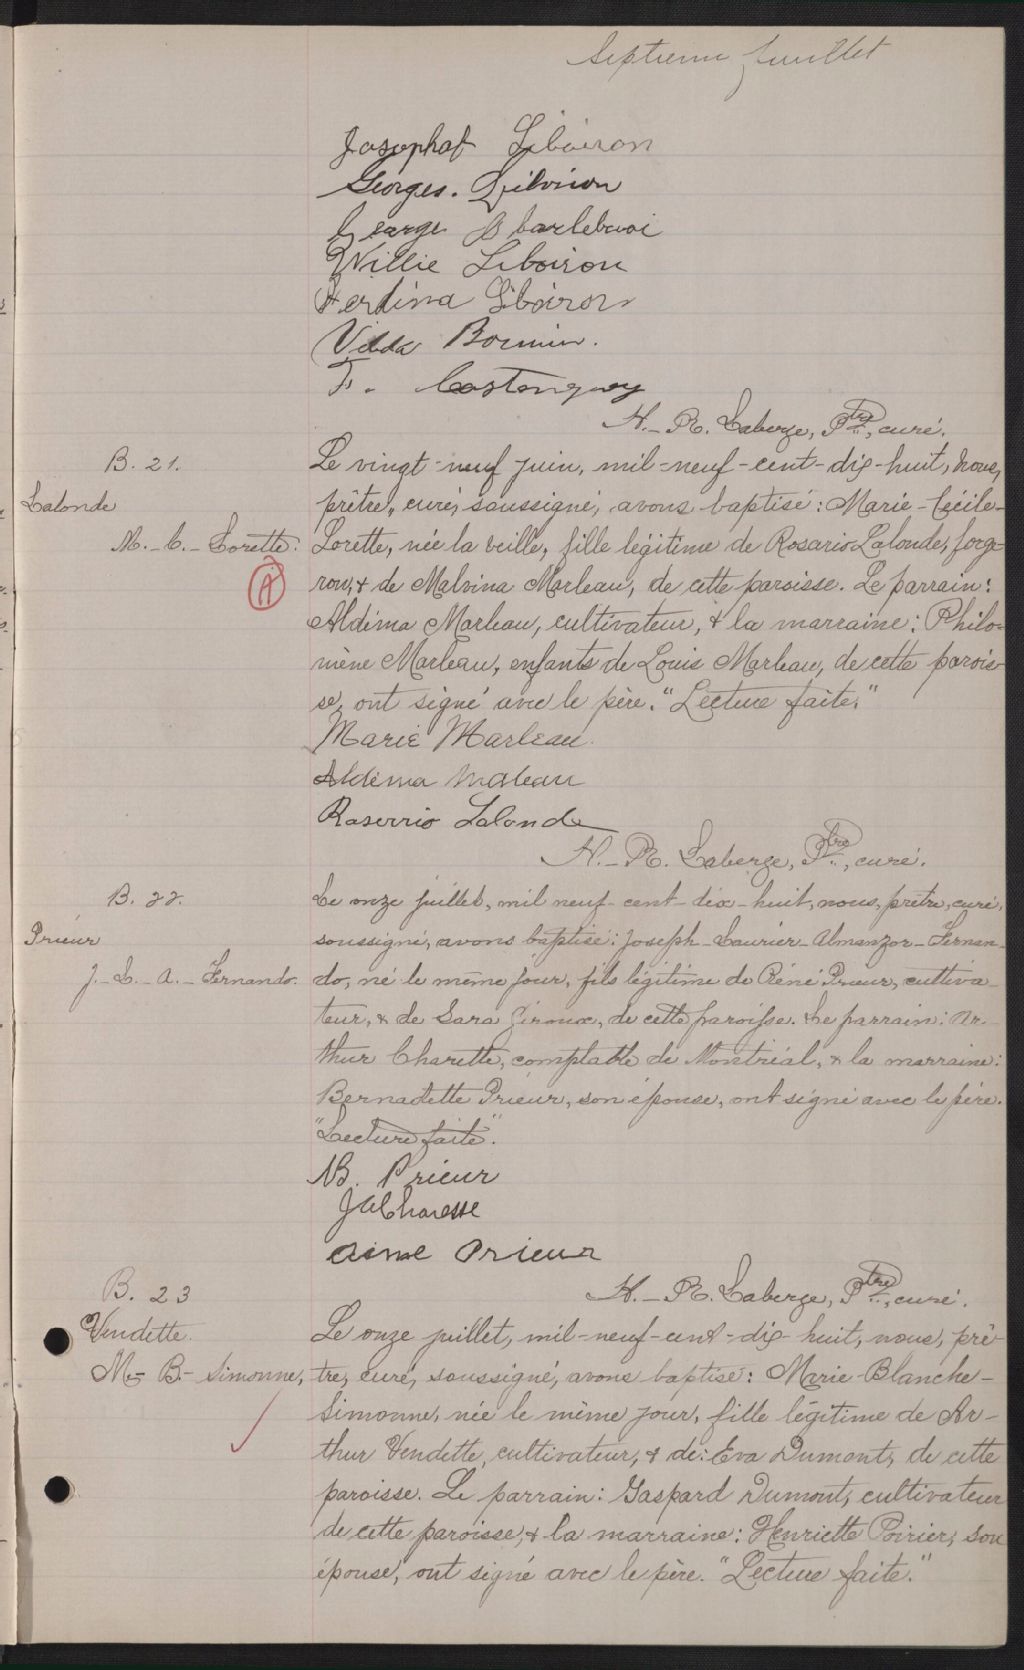 Septième feuillet
Josaphat Liboiron
Georges. Liboiron
George Charleboi
Willie Liboiron
Liboiron
F. Castonguay
H.-R. Laberge, Ptre, curé.
B. 21.
Lalonde
M.-C.-Lorette.
A
Le vingt-neuf juin, mil-neuf-cent-dix-huit, nous,
prêtre, curé, soussigné, avons baptisé: Marie-Cécile-
Lorette, née la veille, fille légitime de Rosario Lalonde, forge-
ron, & de Malvina Marleau, de cette paroisse. Le parrain:
Aldéma Marleau, cultivateur, & la marraine: Philo-
mène Marleau, enfants de Louis Marleau, de cette parois-
se, ont signé avec le père. "Lecture faite."
Marie Marleau.
Aldema Maleau
Roserrio Lalonde
H.-R. Laberge, Ptre, curé.
B. 22.
Prieur
J.-L.-A.-Fernando.
Le onze juillet, mil neuf-cent-dix-huit, nous, prêtre, curé,
soussigné, avons baptisé: Joseph-Laurier-Almanzor-Fernan-
do, né le même jour, fils légitime de Réné Prieur, cultiva-
teur, & de Sara Giroux, de cette paroisse. Le parrain: Ar-
thur Charette, comptable de Montréal, & la marraine:
Bernadette Prieur, son épouse, ont signé avec le père.
"Lecture faite".
B. Prieur
JAlCharette
Prieur
H.-R. Laberge, Ptre, curé.
B. 23
Vendette.
M.-B.-Simonne,
Le onze juillet, mil-neuf-cent-dix-huit, nous, prê-
tre, curé, soussigné, avons baptisé: Marie-Blanche-
Simonne, née le même jour, fille légitime de Ar-
thur Vendette, cultivateur, & de: Eva Dumont, de cette
paroisse. Le parrain: Gaspard Dumont, cultivateur
de cette paroisse, & la marraine: Henriette Poirier, son
épouse, ont signé avec le père. "Lecture faite."